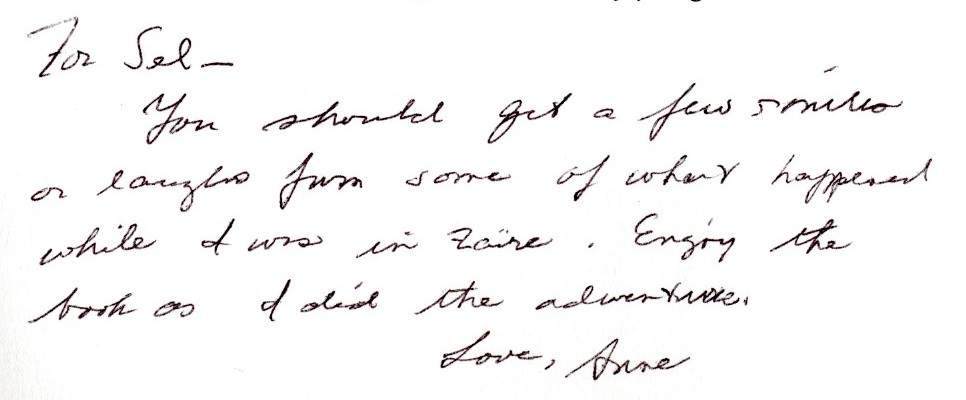 For Sel—
You should get a few smiles
or laughs from some of what happened
while I was in Zaïre. Enjoy the
book as I did the adventure.
Love, Anne